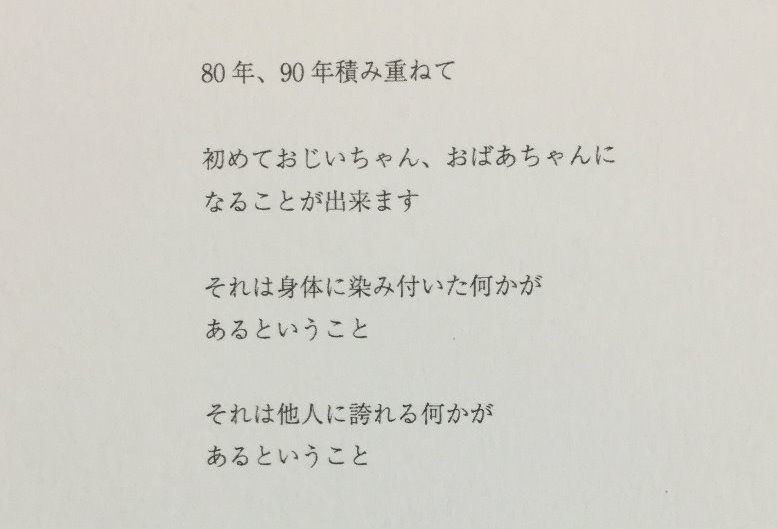 80年、90年積み重ねて
初めておじいちゃん、おばあちゃんに
なることが出来ます
それは身体に染み付いた何かが
あるということ
それは他人に誇れる何かが
あるということ